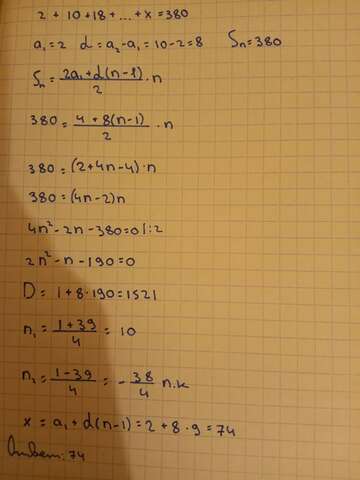 2 + 10 + 18 + ... + x = 380
a₁ = 2 d = a₂ - a₁ = 10 - 2 = 8 Sₙ = 380
Sₙ = (2a₁ + d(n-1))/2 · n
380 = (4 + 8(n-1))/2 · n
380 = (2 + 4n - 4) · n
380 = (4n - 2)n
4n² - 2n - 380 = 0 |:2
2n² - n - 190 = 0
D = 1 + 8 · 190 = 1521
n₁ = (1 + 39)/4 = 10
n₂ = (1 - 39)/4 = - 38/4 п.к
x = a₁ + d(n-1) = 2 + 8 · 9 = 74
Ответ: 74